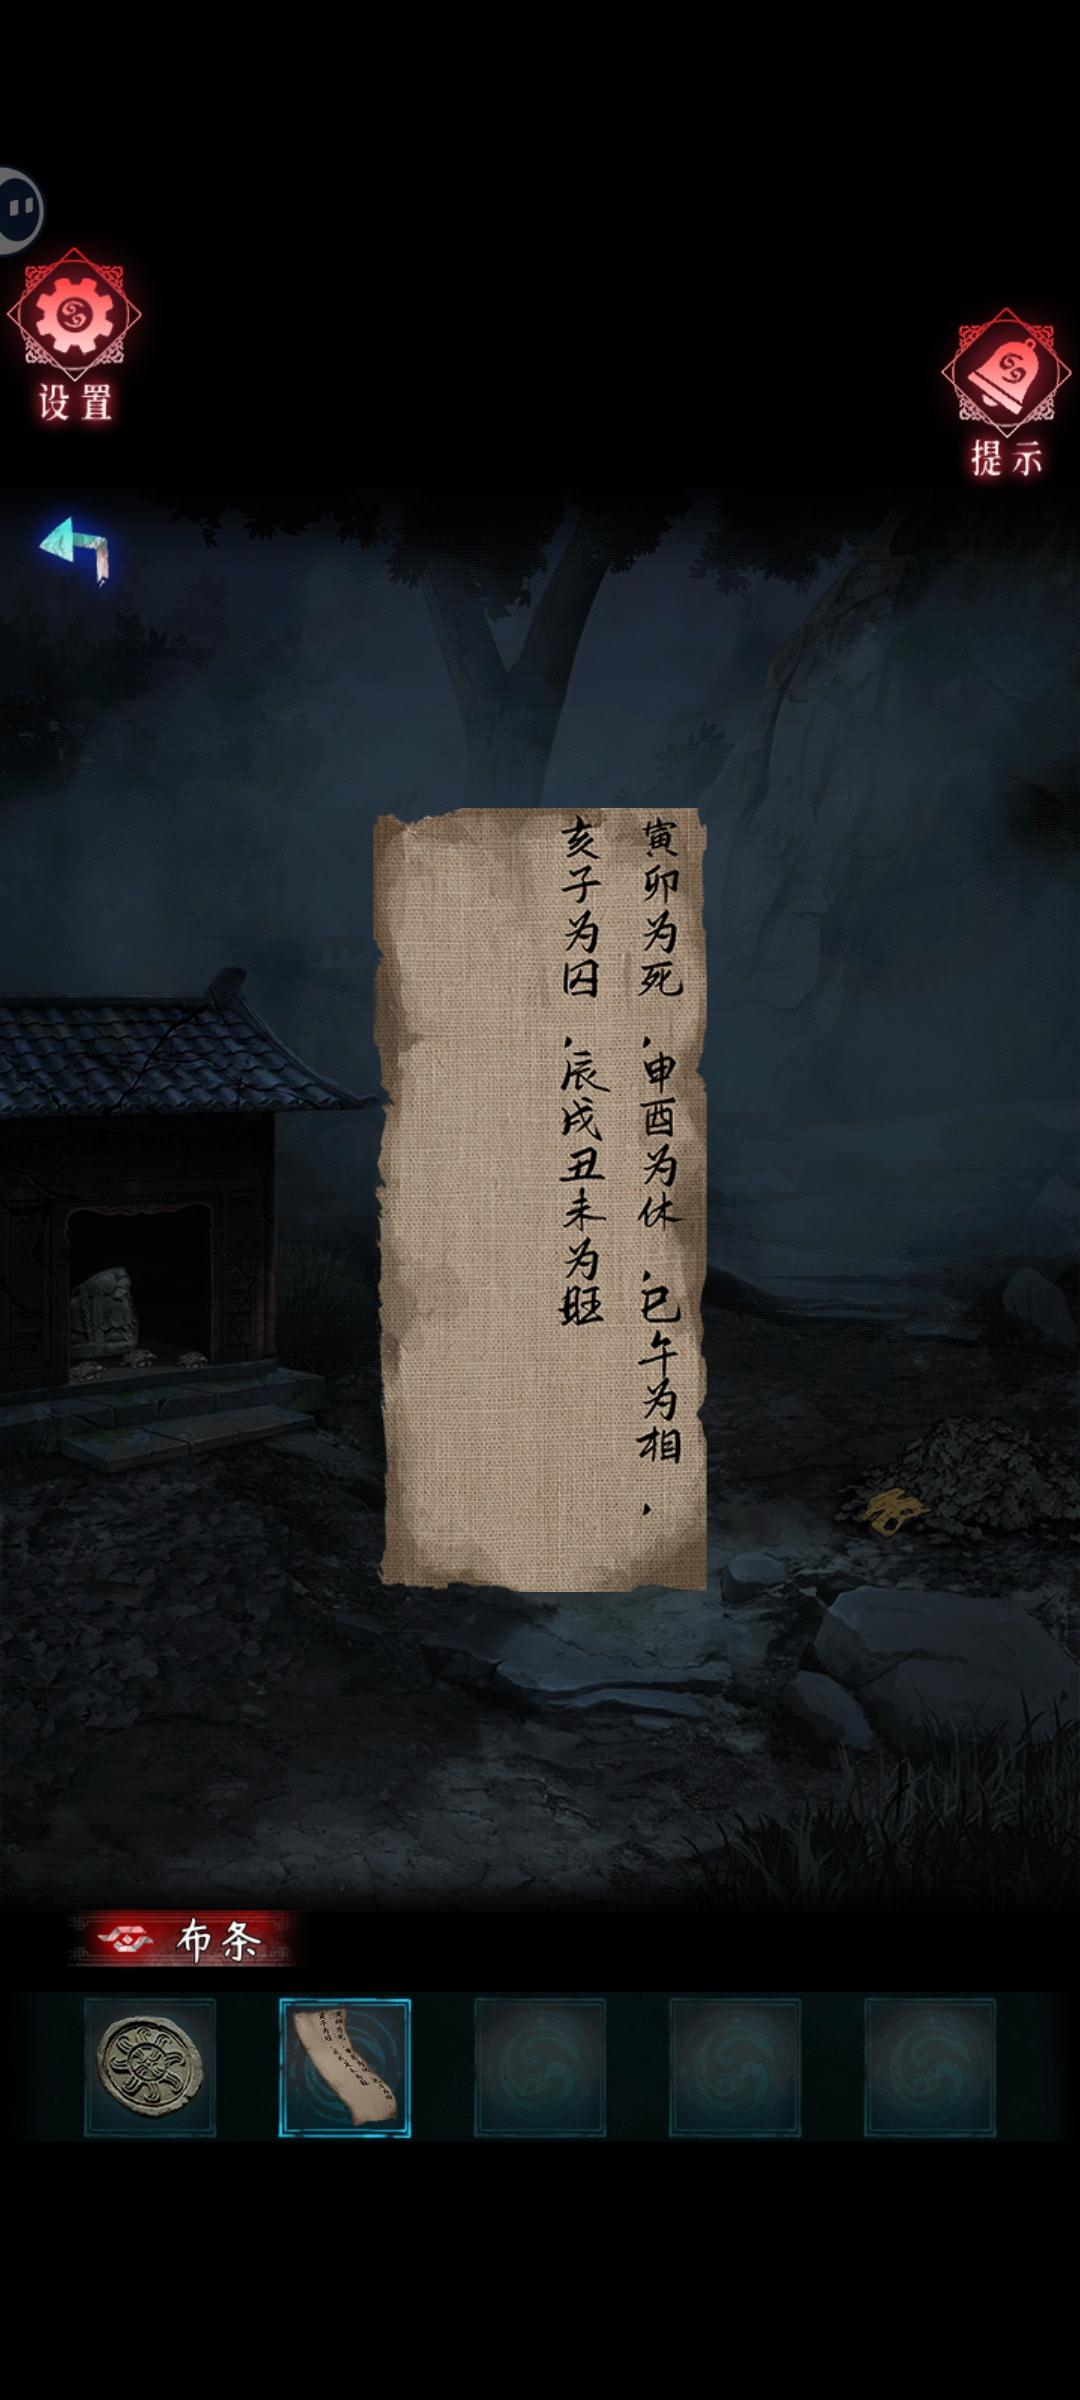 设置
提示
寅卯为死，申酉为休，巳午为相，
亥子为囚，辰戌丑未为旺
布条